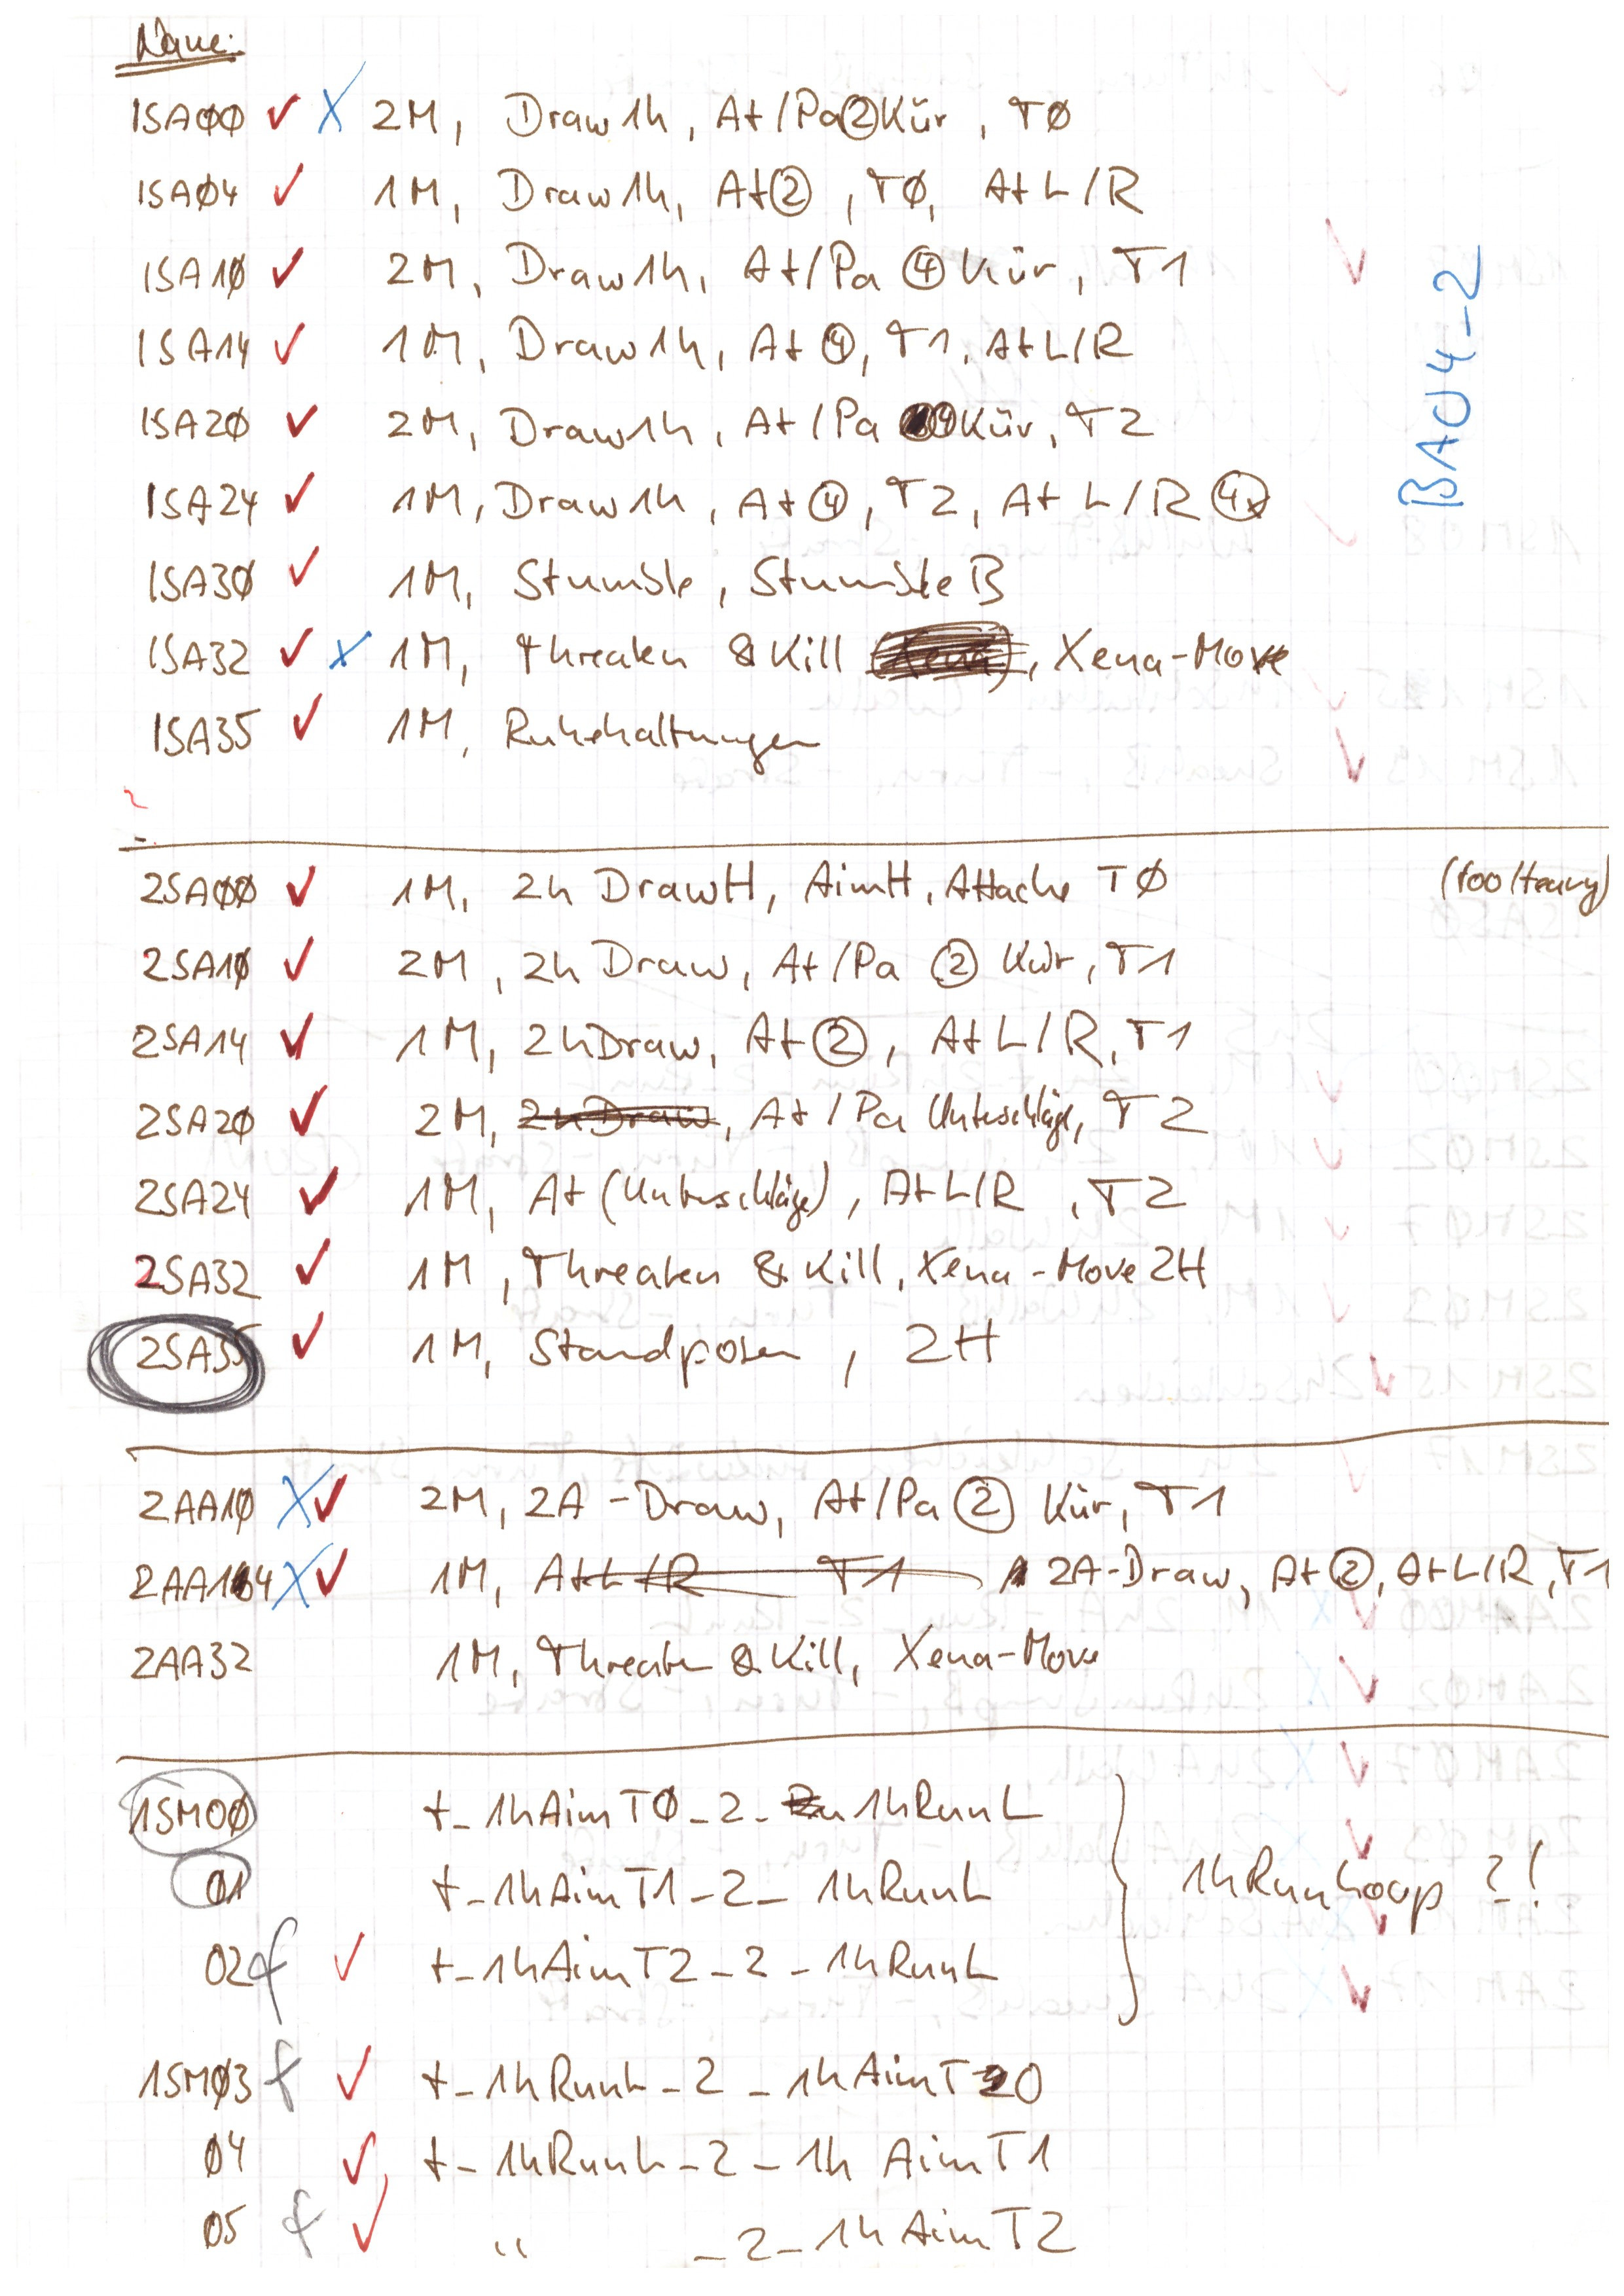 Name:
1SA00 ✓ X 2M, Draw1h, At/Pa②Kür, TØ
1SA04 ✓ 1M, Draw1h, At②, TØ, At L/R
1SA10 ✓ 2M, Draw1h, At/Pa ④ Kür, T1
1SA14 ✓ 1M, Draw1h, At ④, T1, At L/R
1SA20 ✓ 2M, Draw1h, At/Pa ④ Kür, T2
1SA24 ✓ 1M, Draw1h, At ④, T2, At L/R 4x
1SA30 ✓ 1M, Stumble, StumbleB
1SA32 ✓ X 1M, Threaten & Kill, Xena-Move
1SA35 ✓ 1M, Ruhehaltungen
BA04-2
2SA00 ✓ 1M, 2h DrawH, AimH, Attacke TØ
2SA10 ✓ 2M, 2h Draw, At/Pa ② Kür, T1
2SA14 ✓ 1M, 2hDraw, At ②, At L/R, T1
2SA20 ✓ 2M, 2hDraw, At/Pa Unterschläge, T2
2SA24 ✓ 1M, At (Unterschläge), At L/R, T2
2SA32 ✓ 1M, Threaten & Kill, Xena-Move 2H
2SA35 ✓ 1M, Standposen, 2H
2AA10 X ✓ 2M, 2A-Draw, At/Pa ② Kür, T1
2AA14 X ✓ 1M, At L/R T1 2A-Draw, At ②, At L/R, T1
2AA32 1M, Threaten & Kill, Xena-Move
1SM00 t_1hAimT0_2_1hRunL
01 t_1hAimT1_2_1hRunL
1hRunLoop ?!
02 ✓ t_1hAimT2_2_1hRunL
1SM03 ✓ t_1hRunL_2_1hAimT0
04 ✓ t_1hRunL_2_1hAimT1
05 ✓ " _2_1hAimT2